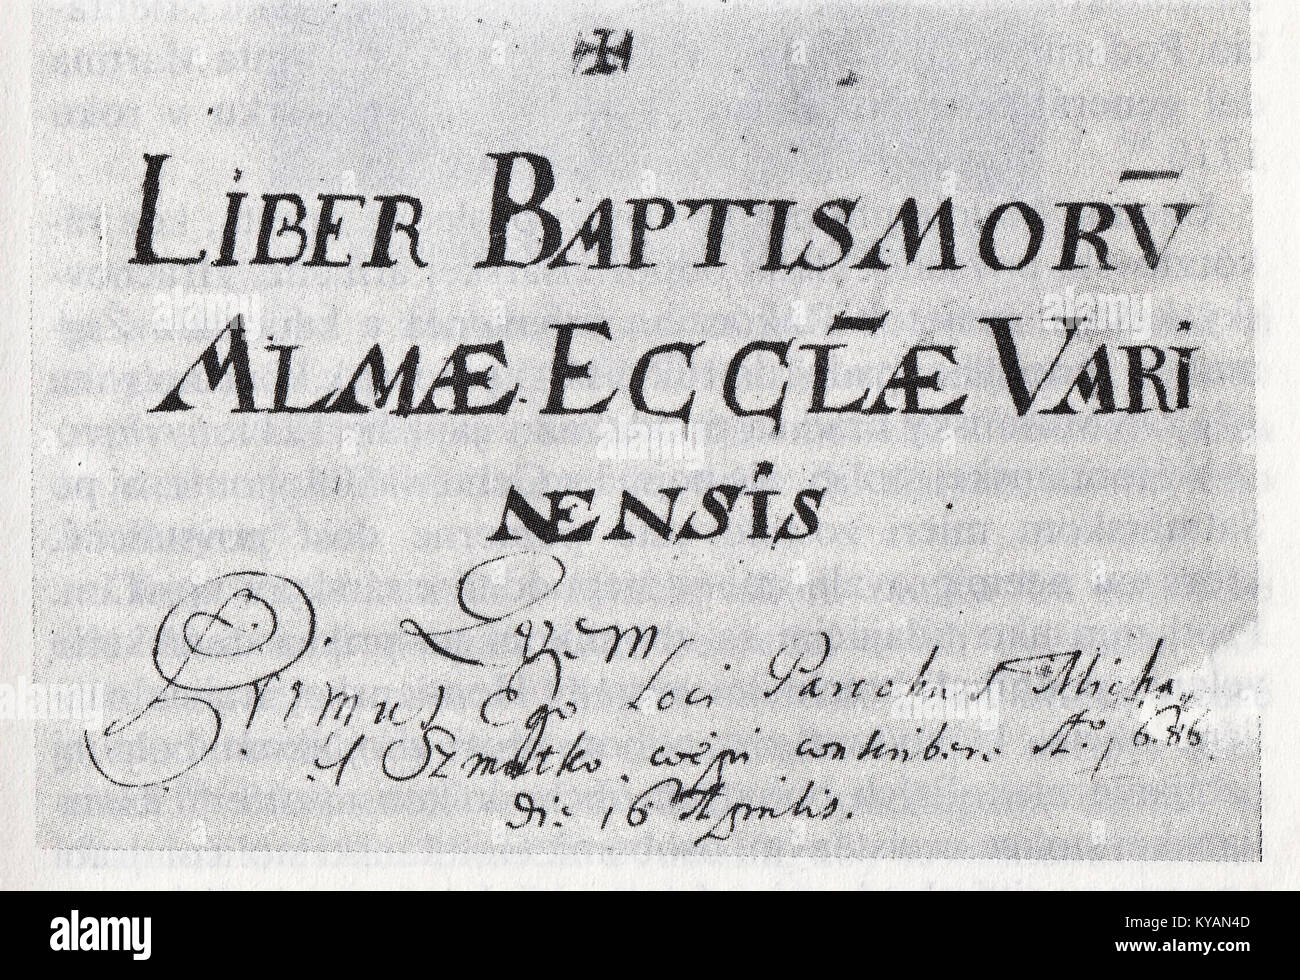 LIBER BAPTISMORV̄
ALMÆ ECCLǢ VARI
NENSIS
Quem
Primus Ego Loci Parochus Micha„
el Szmatko cœpi conscribere Aō 1686
die 16 Aprilis.
alamy
Image ID: KYAN4D
www.alamy.com